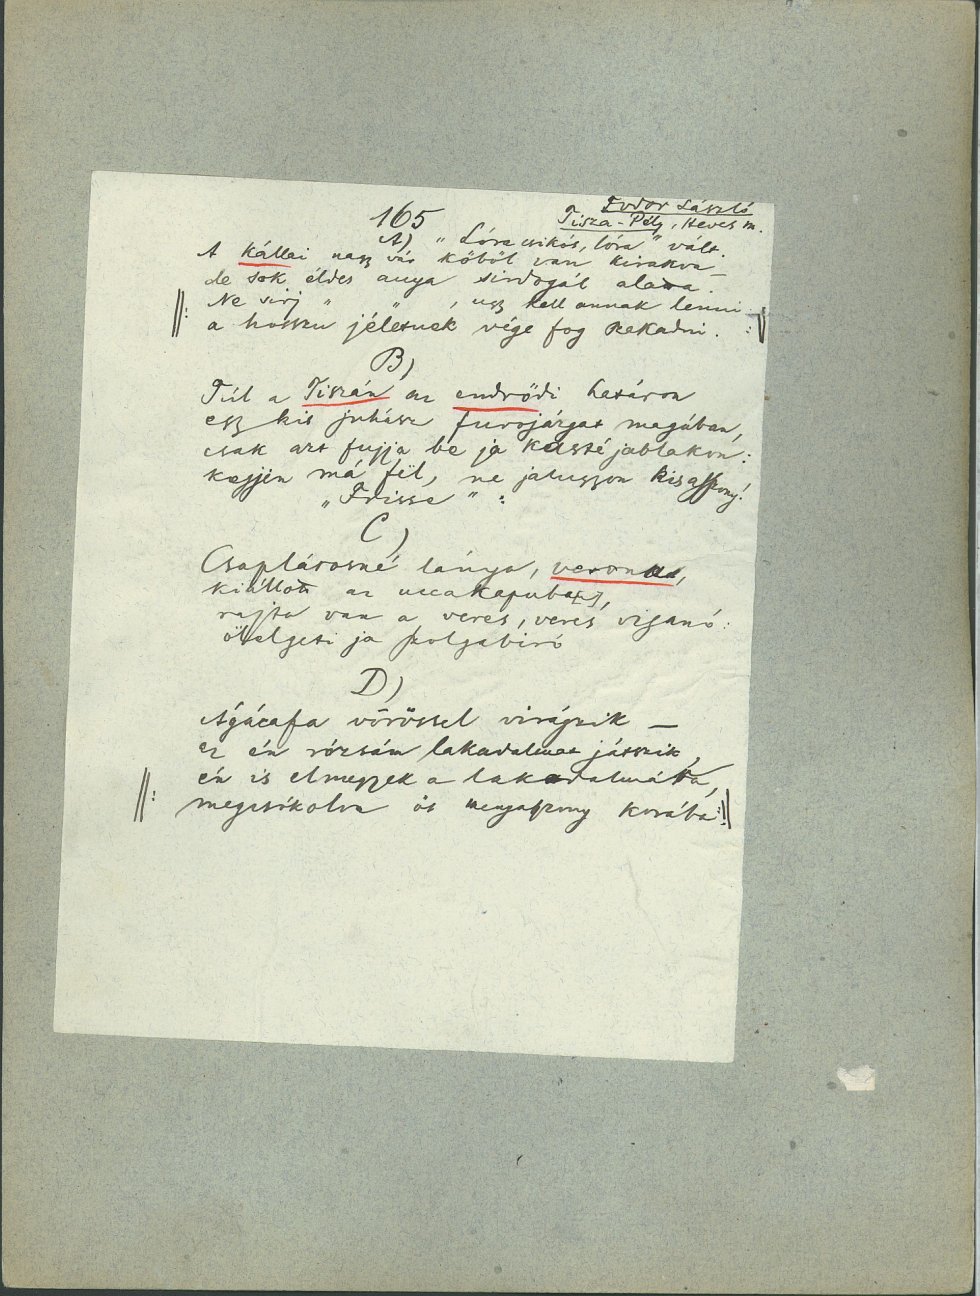 Fodor László
Tisza-Pély, Heves m.
165
A) "Lóra csikós, lóra" vált.
A Kállai nagy vár kőből van kirakva –
de sok éldes anya sirdogál alatta.
||: Ne sirj " " , ugy kell annak lenni
a hosszu jéletnek vége fog szakadni. :||
B)
Túl a Tiszán az endrődi határon
egy kis juhász furojárgat magában,
csak azt fujja be ja kasté jablakon:
kejjen má fël, ne jaluggyon kisasszony!
"Frisse" :
C)
Csaplárosné lánya, veronka,
kiállott az uccakapuba[,],
rajta van a veres, veres viganó:
ölelgeti ja szolgabiró
D)
Ágácafa vörössel virágzik –
ez én rózsám lakadalmat játszik,
||: én is elmegyek a lakadalmába,
megcsókolva öt menyasszony korába :||